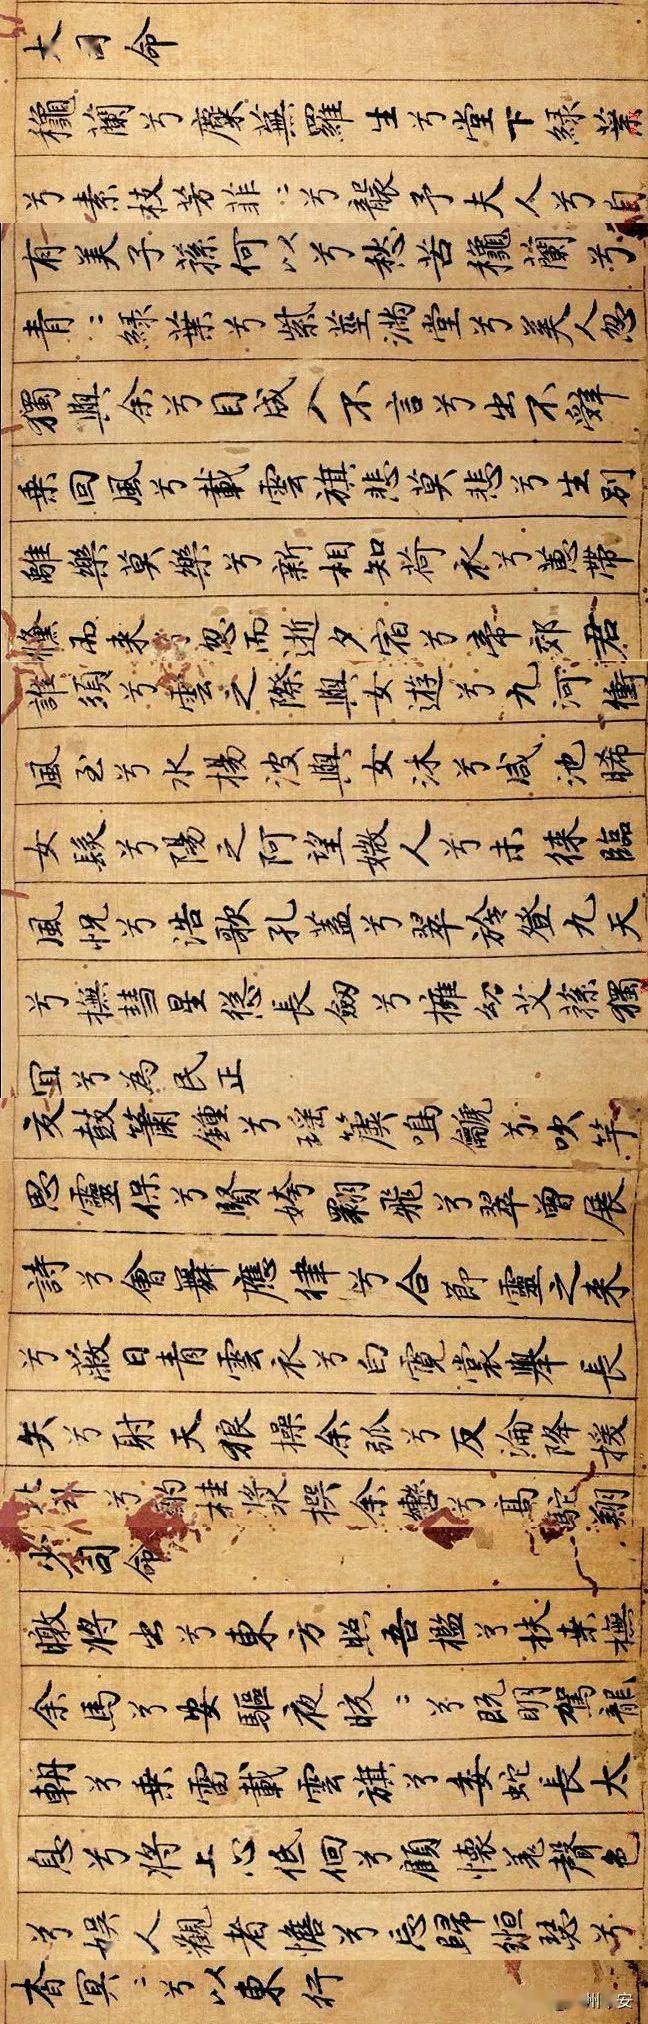 大司命
穐蘭兮麋蕪羅生兮堂下綠葉
兮素枝芳菲〻兮襲予夫人兮自
有美子蓀何以兮愁苦穐蘭兮
青〻綠葉兮紫莖滿堂兮美人忽
獨與余兮目成入不言兮出不辭
乗回風兮載雲旗悲莫悲兮生別
離樂莫樂兮新相知荷衣兮蕙帶
儵而来兮忽而逝夕宿兮帝郊君
誰須兮雲之際與女遊兮九河衝
風至兮水楊波與女沐兮咸池晞
女髮兮陽之阿望媺人兮未徠臨
風怳兮浩歌孔蓋兮翠旍登九天
兮撫彗星慫長劔兮擁幼艾蓀獨
宜兮為民正
交鼓簫鍾兮瑶簴鳴䶵兮吹竽
思靈保兮賢姱翾飛兮翠曾展
詩兮會舞應律兮合節靈之来
兮蔽日青雲衣兮白霓裳舉長
矢兮射天狼操余弧兮反淪降援
北斗兮酌桂漿撰余轡兮高駝翔
少司命
暾將出兮東方照吾檻兮扶桒撫
余馬兮安驅夜晈〻兮既明駕龍
輈兮乗雷載雲旗兮委蛇長太
息兮將上心低佪兮顧懷羌聲色
兮娛人觀者憺兮忘歸緪瑟兮
杳冥〻兮以東行
州安